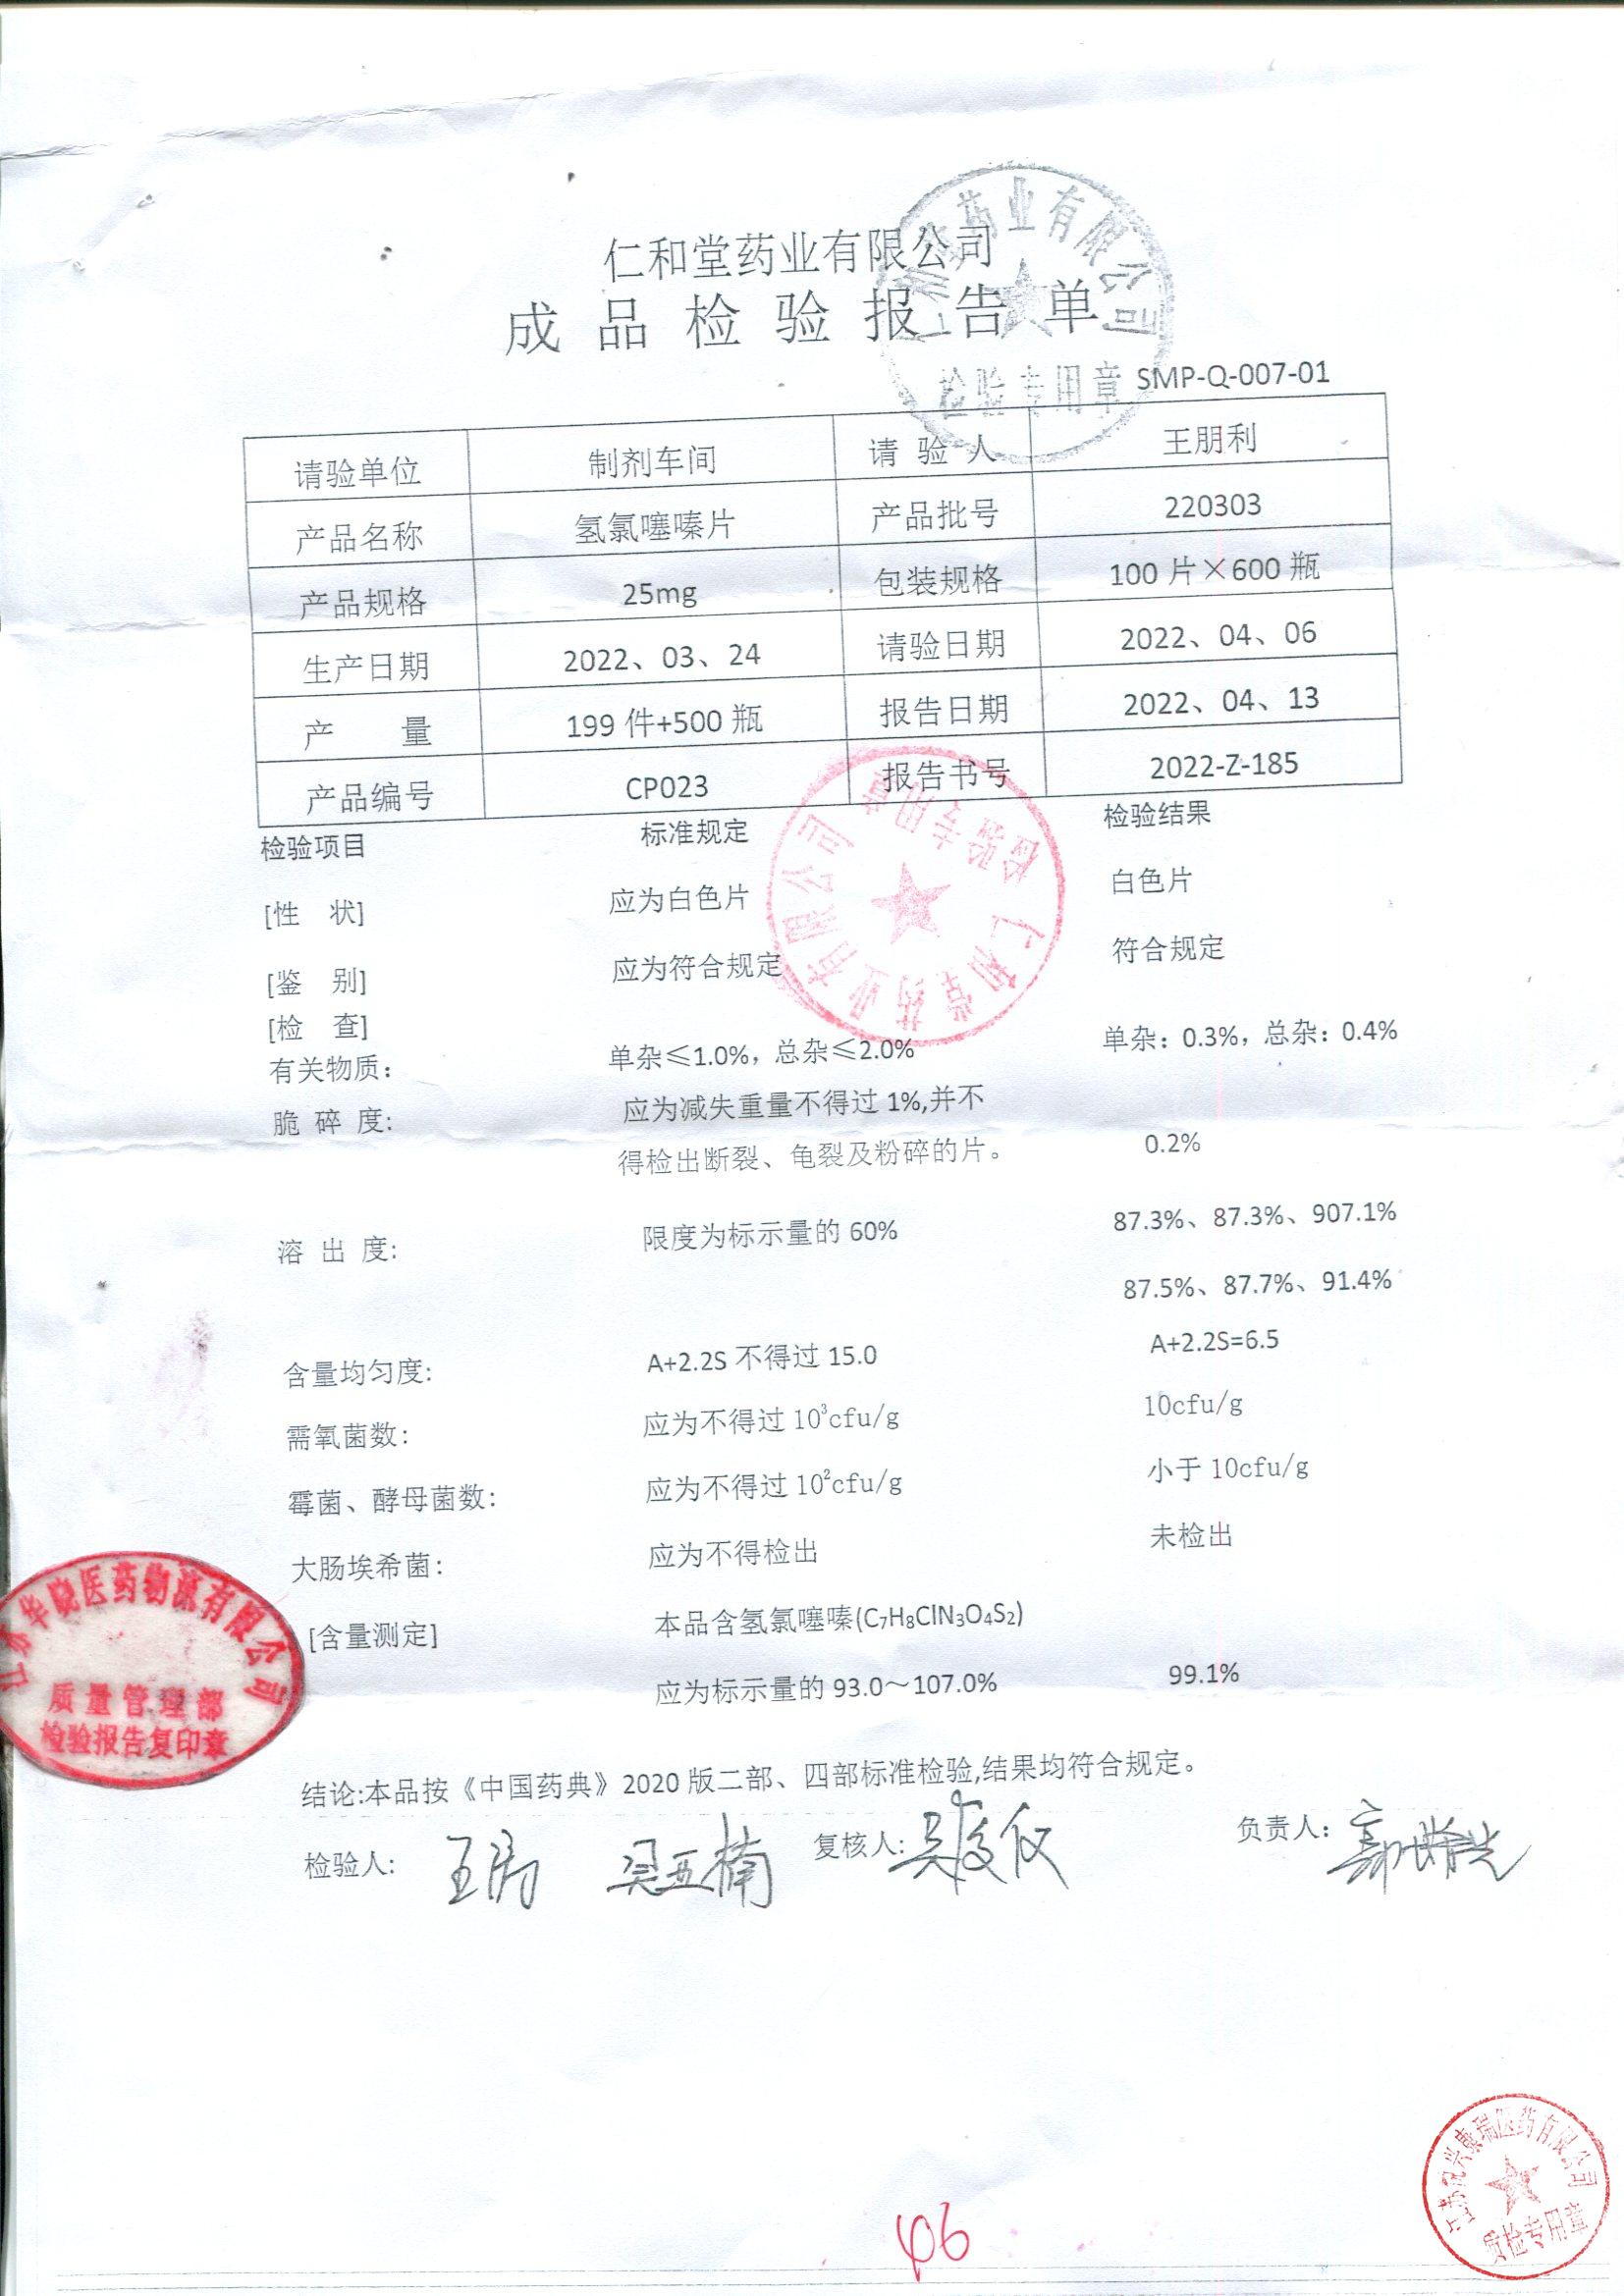 仁和堂药业有限公司
成品检验报告单
药业有限公司
检验专用章
SMP-Q-007-01
请验单位 制剂车间 请验人 王朋利
产品名称 氢氯噻嗪片 产品批号 220303
产品规格 25mg 包装规格 100片×600瓶
生产日期 2022、03、24 请验日期 2022、04、06
产量 199件+500瓶 报告日期 2022、04、13
产品编号 CP023 报告书号 2022-Z-185
仁和堂药业有限公司
检验专用章
检验项目 标准规定 检验结果
[性 状] 应为白色片 白色片
[鉴 别] 应为符合规定 符合规定
[检 查]
有关物质: 单杂≤1.0%，总杂≤2.0% 单杂: 0.3%，总杂: 0.4%
脆碎度: 应为减失重量不得过1%,并不
得检出断裂、龟裂及粉碎的片。 0.2%
溶出度: 限度为标示量的60% 87.3%、87.3%、907.1%
87.5%、87.7%、91.4%
含量均匀度: A+2.2S不得过15.0 A+2.2S=6.5
需氧菌数: 应为不得过10³cfu/g 10cfu/g
霉菌、酵母菌数: 应为不得过10²cfu/g 小于10cfu/g
大肠埃希菌: 应为不得检出 未检出
[含量测定] 本品含氢氯噻嗪(C₇H₈ClN₃O₄S₂)
应为标示量的93.0～107.0% 99.1%
江苏华晓医药物流有限公司
质量管理部
检验报告复印章
结论:本品按《中国药典》2020版二部、四部标准检验,结果均符合规定。
检验人: 吴亚楠 复核人: 负责人:
康瑞医药有限公司
质检专用章